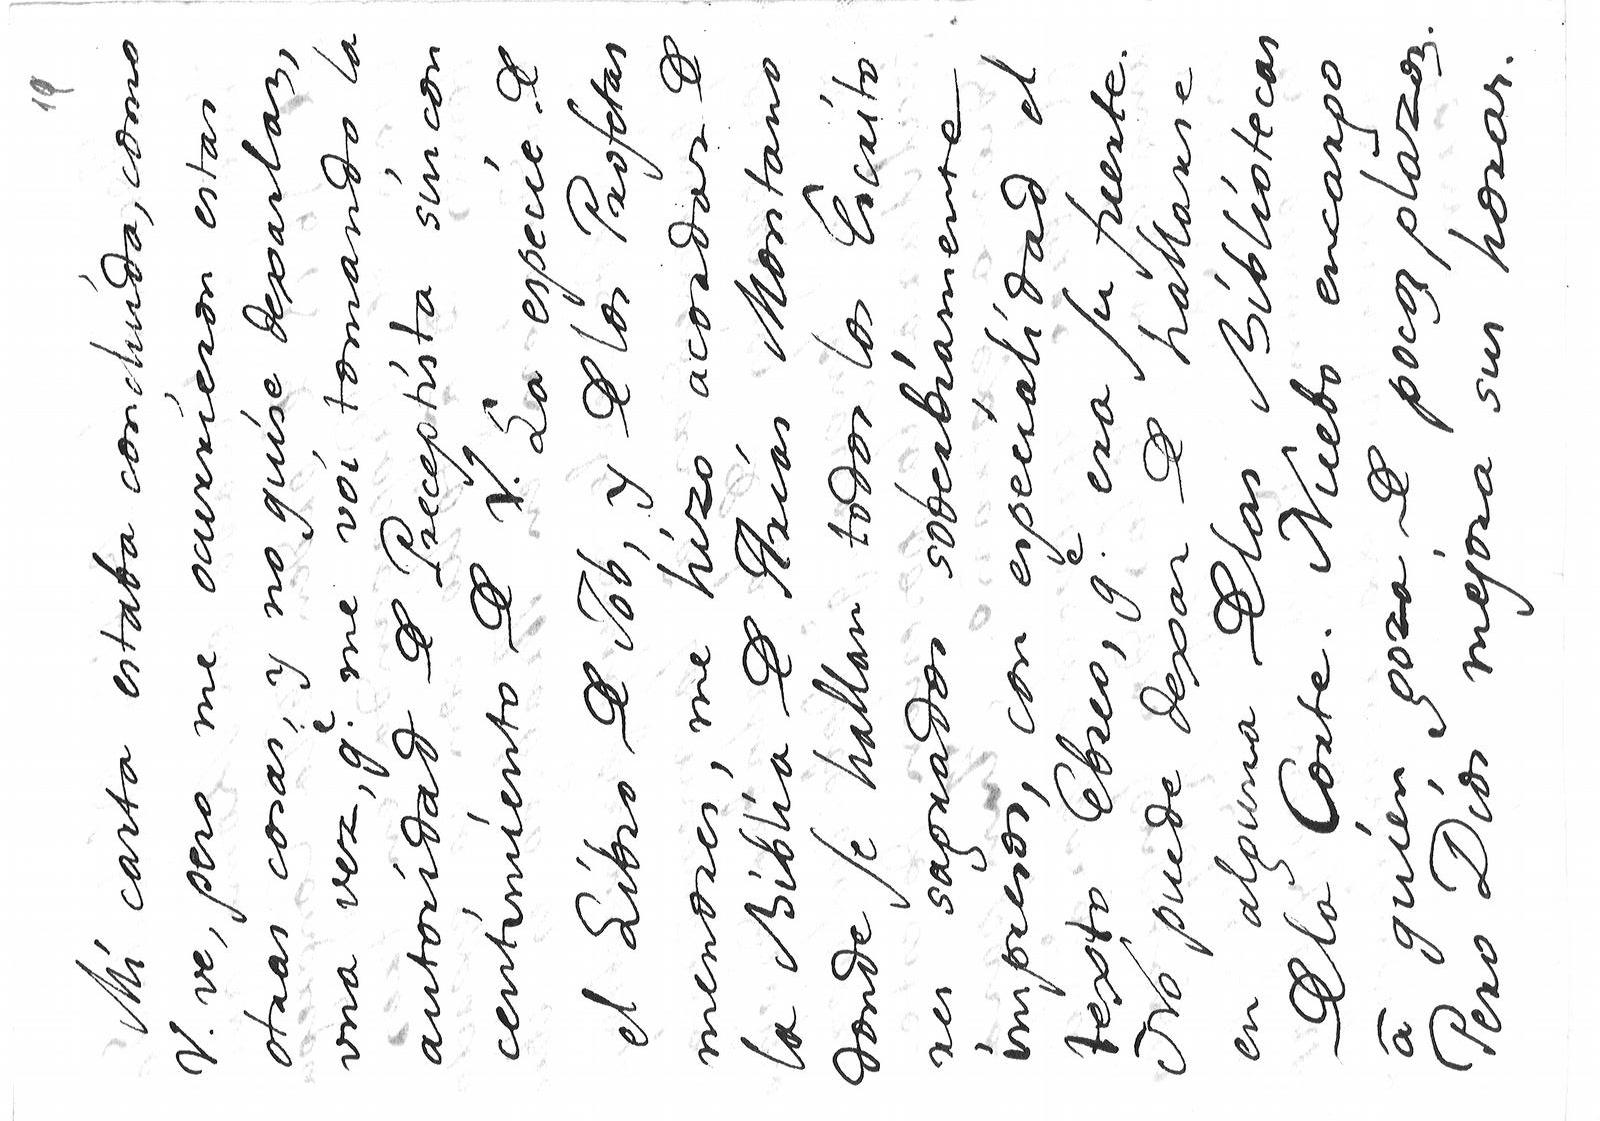 19
Mi carta estaba concluída, como
V. ve, pero me ocurrieron estas
otras cosas, y no quise dexarlas,
una vez, q.e me voi tomando la
autoridad de Preceptista sin con
centimiento de V. La especie de
el Libro de Job, y de los Profetas
menores, me hizo acordar de
la Biblia de Arias Montano
donde se hallan todos los Escrito
res sagrados soberbiamente
impresos, con especialidad el
texto Ebreo, q.e era su fuerte.
No puede dexar de hallarse
en alguna de las Bibliotecas
de la Corte. Nuebo encargo
â quien goza de pocos plazos.
Pero Dios mejora sus horas.